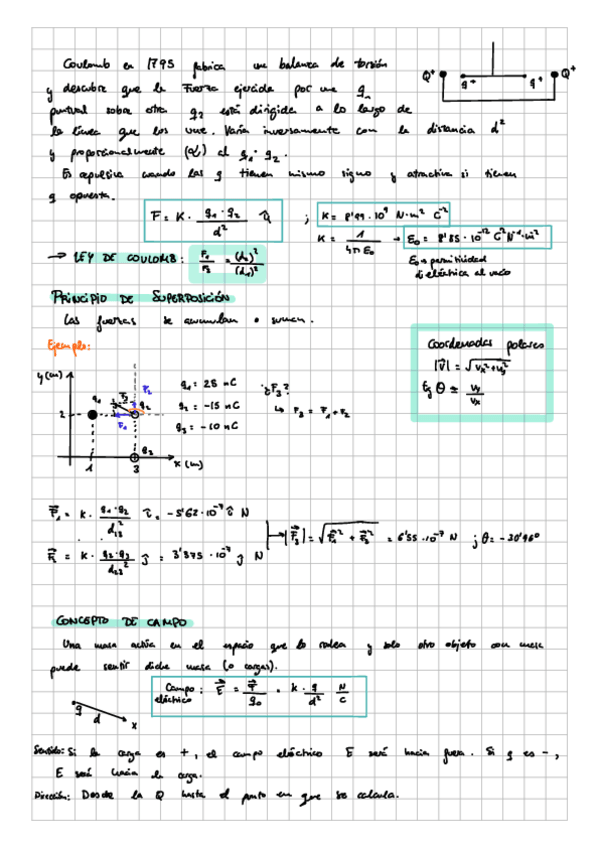 Coulomb en 1795 fabrica una balanza de torsión
y descubre que la Fuerza ejercida por una q₁
puntual sobre otra q₂ está dirigida a lo largo de
la línea que los une. Varía inversamente con la distancia d²
y proporcionalmente (α) al q₁·q₂.
Es repulsiva cuando las q tienen mismo signo y atractiva si tienen
q opuesta.
Q⁺ q⁺ q⁺ Q⁺
F = K · q₁·q₂ / d² ; K = 8'99 · 10⁹ N·m² C⁻²
K = 1 / 4π ε₀ → ε₀ = 8'85 · 10⁻¹² C² N⁻¹·m²
→ LEY DE COULOMB: F₁ / F₂ = (d₂)² / (d₁)²
ε₀ → permitividad
dieléctrica al vacío
PRINCIPIO DE SUPERPOSICIÓN
Las fuerzas se acumulan o suman.
Ejemplo:
Coordenadas polares
|V⃗| = √(vx² + vy²)
tg θ = vy / vx
y (m)
q₁ F₃ F₂ q₂
2 F₁
q₃
1 3 x (m)
q₁ = 25 nC
q₂ = -15 nC
q₃ = -10 nC
¿F₃?
↳ F₃ = F₁ + F₂
F⃗₁ = K · q₁·q₂ / d₁₂² î = -5'62·10⁻⁷ î N
F⃗₂ = K · q₂·q₃ / d₂₃² ĵ = 3'375 · 10⁻⁷ ĵ N
|F⃗₃| = √(F⃗₁² + F⃗₂²) = 6'55 · 10⁻⁷ N ; θ = -30'96º
CONCEPTO DE CAMPO
Una masa actúa en el espacio que lo rodea y solo otro objeto con masa
puede sentir dicha masa (o cargas).
Campo eléctrico : E⃗ = F⃗ / q₀ = k · q / d² N / C
q d x
Sentido: Si la carga es +, el campo eléctrico E será hacia fuera. Si q es -,
E será hacia la carga.
Dirección: Desde la Q hasta el punto en que se calcula.